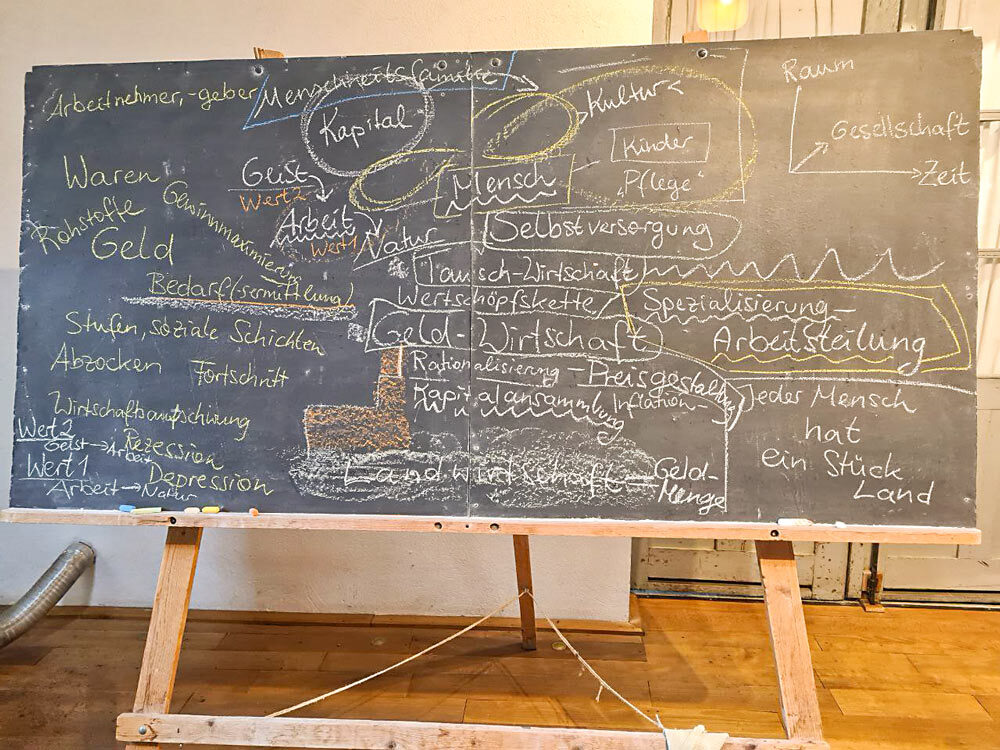 Arbeitnehmer, -geber
Menschheitsfamilie
Kapital
Waren
Geist
Wert2
Arbeit
Wert1
Natur
Rohstoffe
Gewinnmaximierung
Geld
Bedarf(sermittlung)
Stufen, soziale Schichten
Abzocken Fortschritt
Wirtschaftsaufschwung
Wert2
Geist → Arbeit
Rezession
Wert1
Arbeit → Natur
Depression
Kultur
Kinder
Mensch
„Pflege“
Selbstversorgung
Tausch-Wirtschaft
Wertschöpfskette
Spezialisierung-
Arbeitsteilung
Geld-Wirtschaft
Rationalisierung - Preisgestaltung
Kapitalansammlung Inflation
Landwirtschaft
Geld-
Menge
Raum
Gesellschaft
Zeit
Jeder Mensch
hat
ein Stück
Land